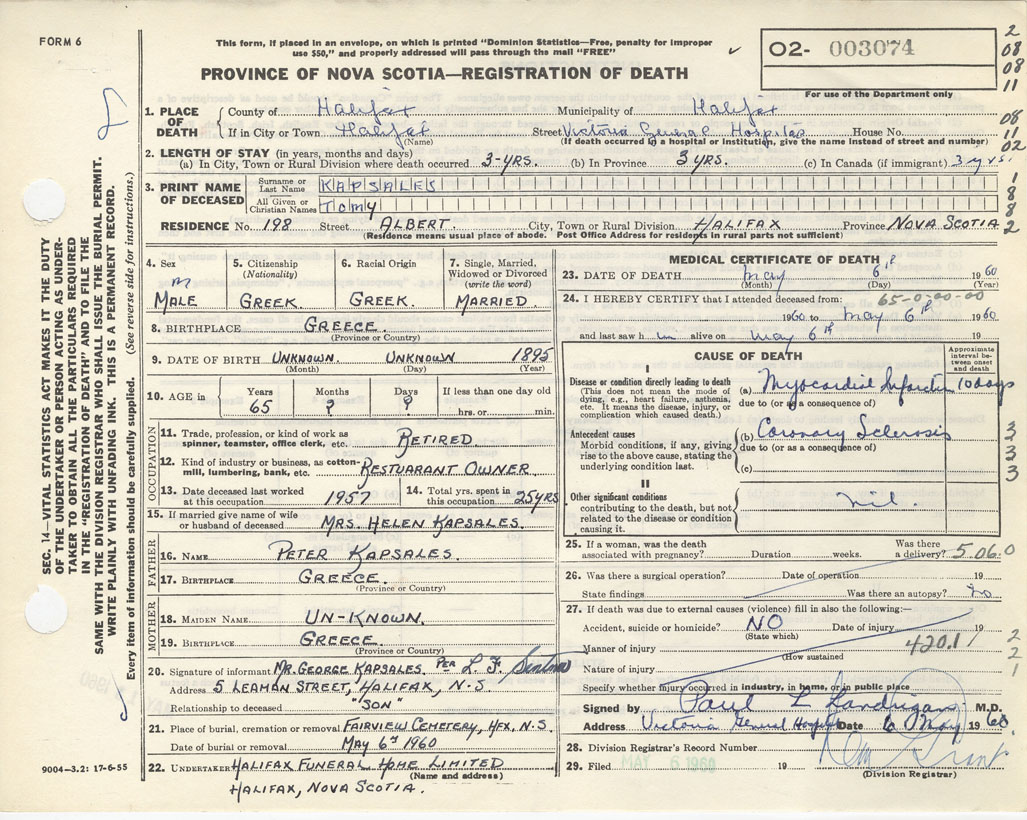 FORM 6
This form, if placed in an envelope, on which is printed "Dominion Statistics—Free, penalty for improper
use $50," and properly addressed will pass through the mail "FREE"
PROVINCE OF NOVA SCOTIA—REGISTRATION OF DEATH
O2- 003074
For use of the Department only
2
08
08
11
08
11
02
1
8
8
2
1. PLACE OF DEATH
County of Halifax Municipality of Halifax
If in City or Town Halifax Street Victoria General Hospital House No.
(Name) (If death occurred in a hospital or institution, give the name instead of street and number)
2. LENGTH OF STAY (in years, months and days)
(a) In City, Town or Rural Division where death occurred 3-YRS. (b) In Province 3 YRS. (c) In Canada (if immigrant) 3 yrs.
3. PRINT NAME OF DECEASED
Surname or Last Name KAPSALES
All Given or Christian Names Tomy
RESIDENCE No. 198 Street ALBERT. City, Town or Rural Division HALIFAX Province NOVA SCOTIA
(Residence means usual place of abode. Post Office Address for residents in rural parts not sufficient)
4. Sex m MALE
5. Citizenship (Nationality) GREEK
6. Racial Origin GREEK.
7. Single, Married, Widowed or Divorced (write the word) MARRIED
8. BIRTHPLACE GREECE.
(Province or Country)
9. DATE OF BIRTH UNKNOWN. UNKNOWN 1895
(Month) (Day) (Year)
10. AGE in Years 65 Months ? Days ? If less than one day old hrs. or min.
OCCUPATION
11. Trade, profession, or kind of work as
spinner, teamster, office clerk, etc. RETIRED.
12. Kind of industry or business, as cotton-
mill, lumbering, bank, etc. RESTURANT OWNER
13. Date deceased last worked
at this occupation 1957
14. Total yrs. spent in
this occupation 25YRS
15. If married give name of wife
or husband of deceased MRS. HELEN KAPSALES.
FATHER
16. NAME PETER KAPSALES.
17. BIRTHPLACE GREECE.
(Province or Country)
MOTHER
18. MAIDEN NAME UN-KNOWN.
19. BIRTHPLACE GREECE.
(Province or Country)
20. Signature of informant MR. GEORGE KAPSALES. PER L. F.
Address 5 LEAMAN STREET, HALIFAX, N.S.
Relationship to deceased "SON"
21. Place of burial, cremation or removal FAIRVIEW CEMETERY, HFX, N.S
Date of burial or removal MAY 6th 1960
22. UNDERTAKER HALIFAX FUNERAL HOME LIMITED
(Name and address)
HALIFAX, NOVA SCOTIA.
MEDICAL CERTIFICATE OF DEATH
23. DATE OF DEATH May 6th 1960
(Month) (Day) (Year)
24. I HEREBY CERTIFY that I attended deceased from: 65-0-00-00
1960 to May 6th 1960
and last saw h im alive on May 6th 19
CAUSE OF DEATH
Approximate interval between onset and death
I
Disease or condition directly leading to death
(This does not mean the mode of
dying, e.g., heart failure, asthenia,
etc. It means the disease, injury, or
complication which caused death.)
(a) Myocardial Infarction 10 days
due to (or as a consequence of)
Antecedent causes
Morbid conditions, if any, giving
rise to the above cause, stating the
underlying condition last.
(b) Coronary Sclerosis
due to (or as a consequence of)
(c)
3
3
3
II
Other significant conditions
contributing to the death, but not
related to the disease or condition
causing it.
nil.
25. If a woman, was the death
associated with pregnancy? Duration weeks. Was there a delivery? 5 06 0
26. Was there a surgical operation? Date of operation 19
State findings Was there an autopsy? no
27. If death was due to external causes (violence) fill in also the following:—
Accident, suicide or homicide? NO Date of injury 19
(State which)
Manner of injury 420.1
(How sustained
Nature of injury
2
2
1
Specify whether injury occurred in industry, in home, or in public place
Signed by Paul L Landrigan M.D.
Address Victoria General Hospital Date 6 May 1960.
28. Division Registrar's Record Number
29. Filed MAY 6 1960 19 Grant
(Division Registrar)
SEC. 14—VITAL STATISTICS ACT MAKES IT THE DUTY
OF THE UNDERTAKER OR PERSON ACTING AS UNDER-
TAKER TO OBTAIN ALL THE PARTICULARS REQUIRED
IN THE "REGISTRATION OF DEATH" AND FILE THE
SAME WITH THE DIVISION REGISTRAR WHO SHALL ISSUE THE BURIAL PERMIT.
WRITE PLAINLY WITH UNFADING INK. THIS IS A PERMANENT RECORD.
Every item of information should be carefully supplied. (See reverse side for instructions.)
9004-3.2: 17-6-55